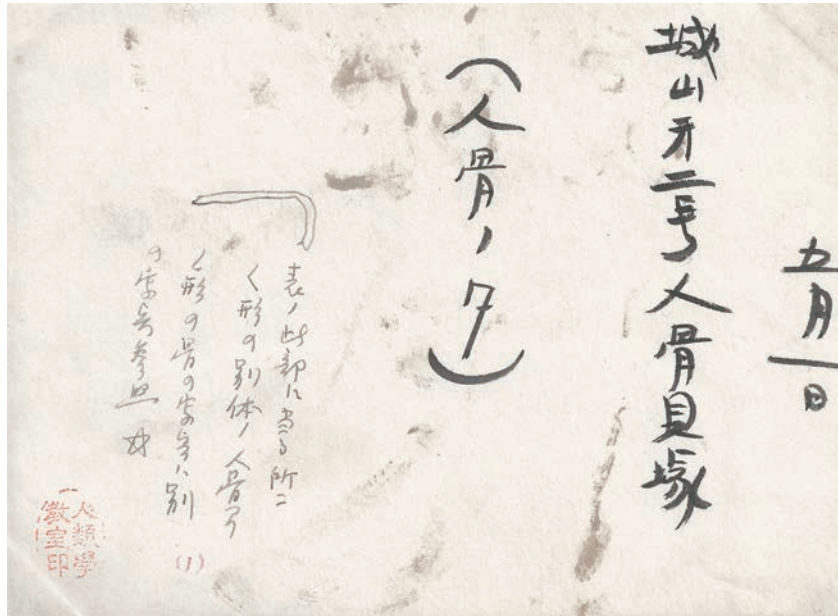 五月一日
城山第二号人骨貝塚
(人骨ノタ)
表ノ此部ニ当る所ニ
く形の別体ノ人骨アリ
く形の骨の写真ハ別
の写真参照
(1)
人類學
教室印